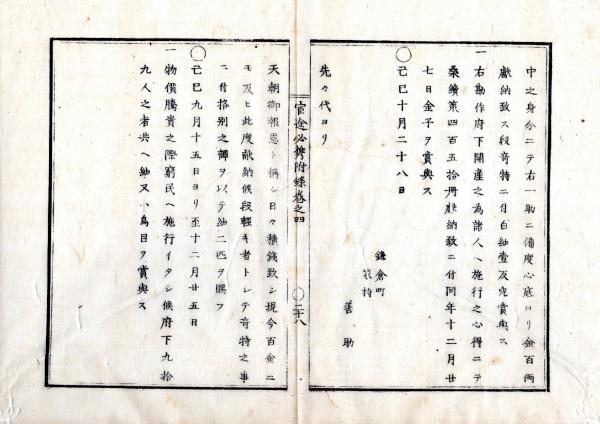 中之身分ニテ右一助ニ備度心底ヨリ金百両
献納致ス段奇特ニ付白紬壹反宛賞典ス
一右勘作府下開産之為諸人ヘ施行之心得ニテ
桑績第四百五拾册献納致ニ付同年十二月廿
七日金子ヲ賞典ス
〇己巳十月二十八日
鎌倉町
家持
善助
先々代ヨリ
官途必携附録巻之四
〇二十八
天朝御報恩ト稱シ日々積錢致シ現今百金ニ
モ及ヒ此度献納候段輕キ者トシテ奇特之事
ニ付格別之譯ヲ以テ紬二匹ヲ賜フ
〇己巳九月十五日ヨリ至十二月廿五日
一物價騰貴之際窮民ヘ施行イタシ候府下九拾
九人之者共ヘ紬又ハ鳥目ヲ賞典ス